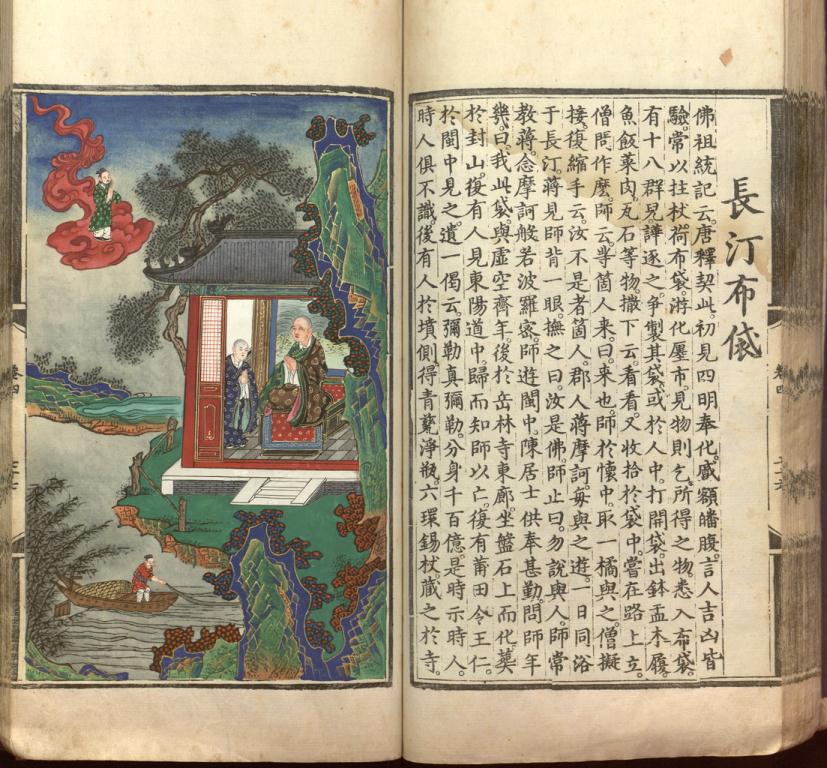 長汀布袋
佛祖統記云。唐釋契此。初見四明奉化。蹙額皤腹。言人吉凶皆
驗。常以拄杖荷布袋。游化廛市。見物則乞。所得之物。悉入布袋。
有十八群兒譁逐之。爭製其袋。或於人中。打開袋。出鉢盂木履。
魚飯菜肉。瓦石等物。撒下云。看看。又收拾於袋中。嘗在路上立。
僧問作麼。師云。等箇人來。曰來也。師於懷中。取一橘與之。僧擬
接。復縮手云。汝不是者箇人。郡人蔣摩訶。每與之遊。一日同浴
于長汀。蔣見師背一眼。撫之曰。汝是佛。師止曰。勿說與人。師常
教蔣。念摩訶般若波羅密。師遊閩中。陳居士供奉甚勤。問師年
幾。曰。我此袋與虛空齊年。後於岳林寺東廊。坐盤石上而化。葬
於封山。復有人見東陽道中。歸而知師以亡。復有莆田令王仁。
於閩中見之。遺一偈云。彌勒真彌勒。分身千百億。是時示時人。
時人俱不識。後有人於墳側。得青甆淨瓶。六環錫杖。藏之於寺。
卷四